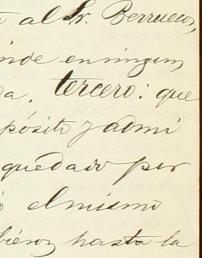 al Sr. Berrueco,
inde en ningun
da, tercero: que
pósito y admi
quedado por
el mismo
hasta la